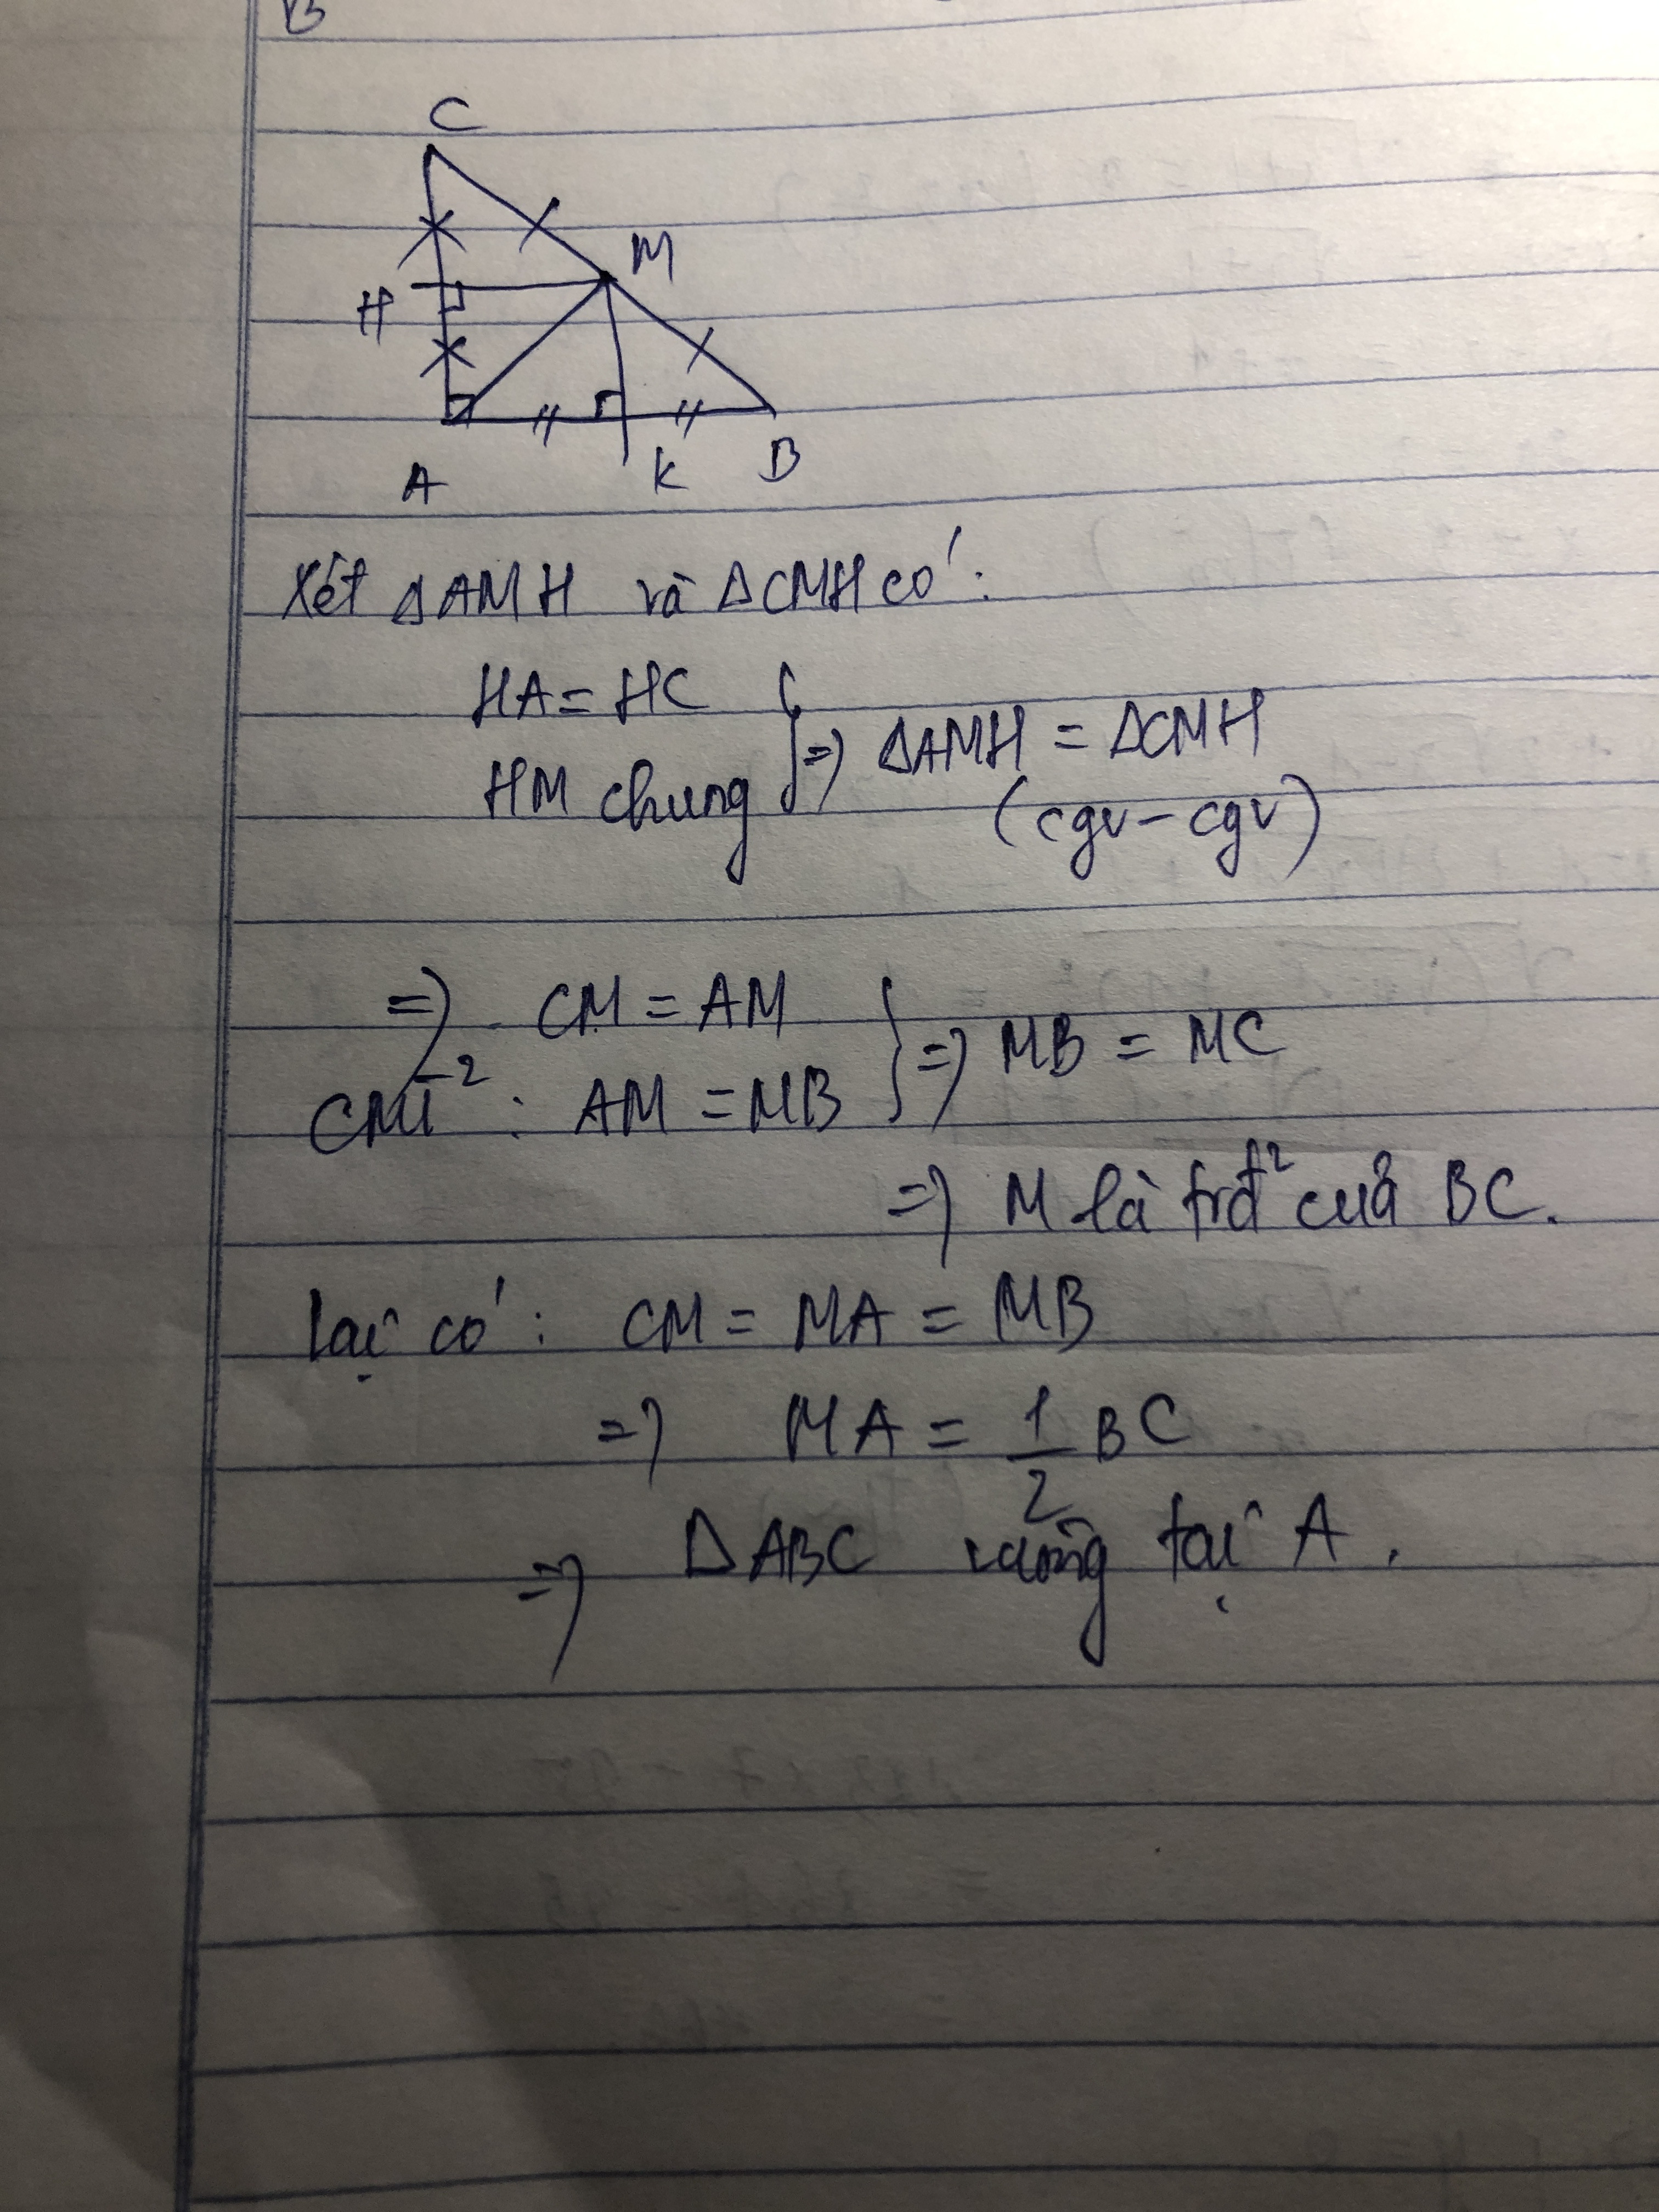 B
C
M
H
A
K
B
Xét ΔAMH và ΔCMH có:
HA = HC
HM chung } => ΔAMH = ΔCMH
(cgv - cgv)
=> CM = AM
CMT²: AM = MB } => MB = MC
=> M là trđ² của BC.
lại có: CM = MA = MB
=> MA = 1/2 BC
=> ΔABC vuông tại A.